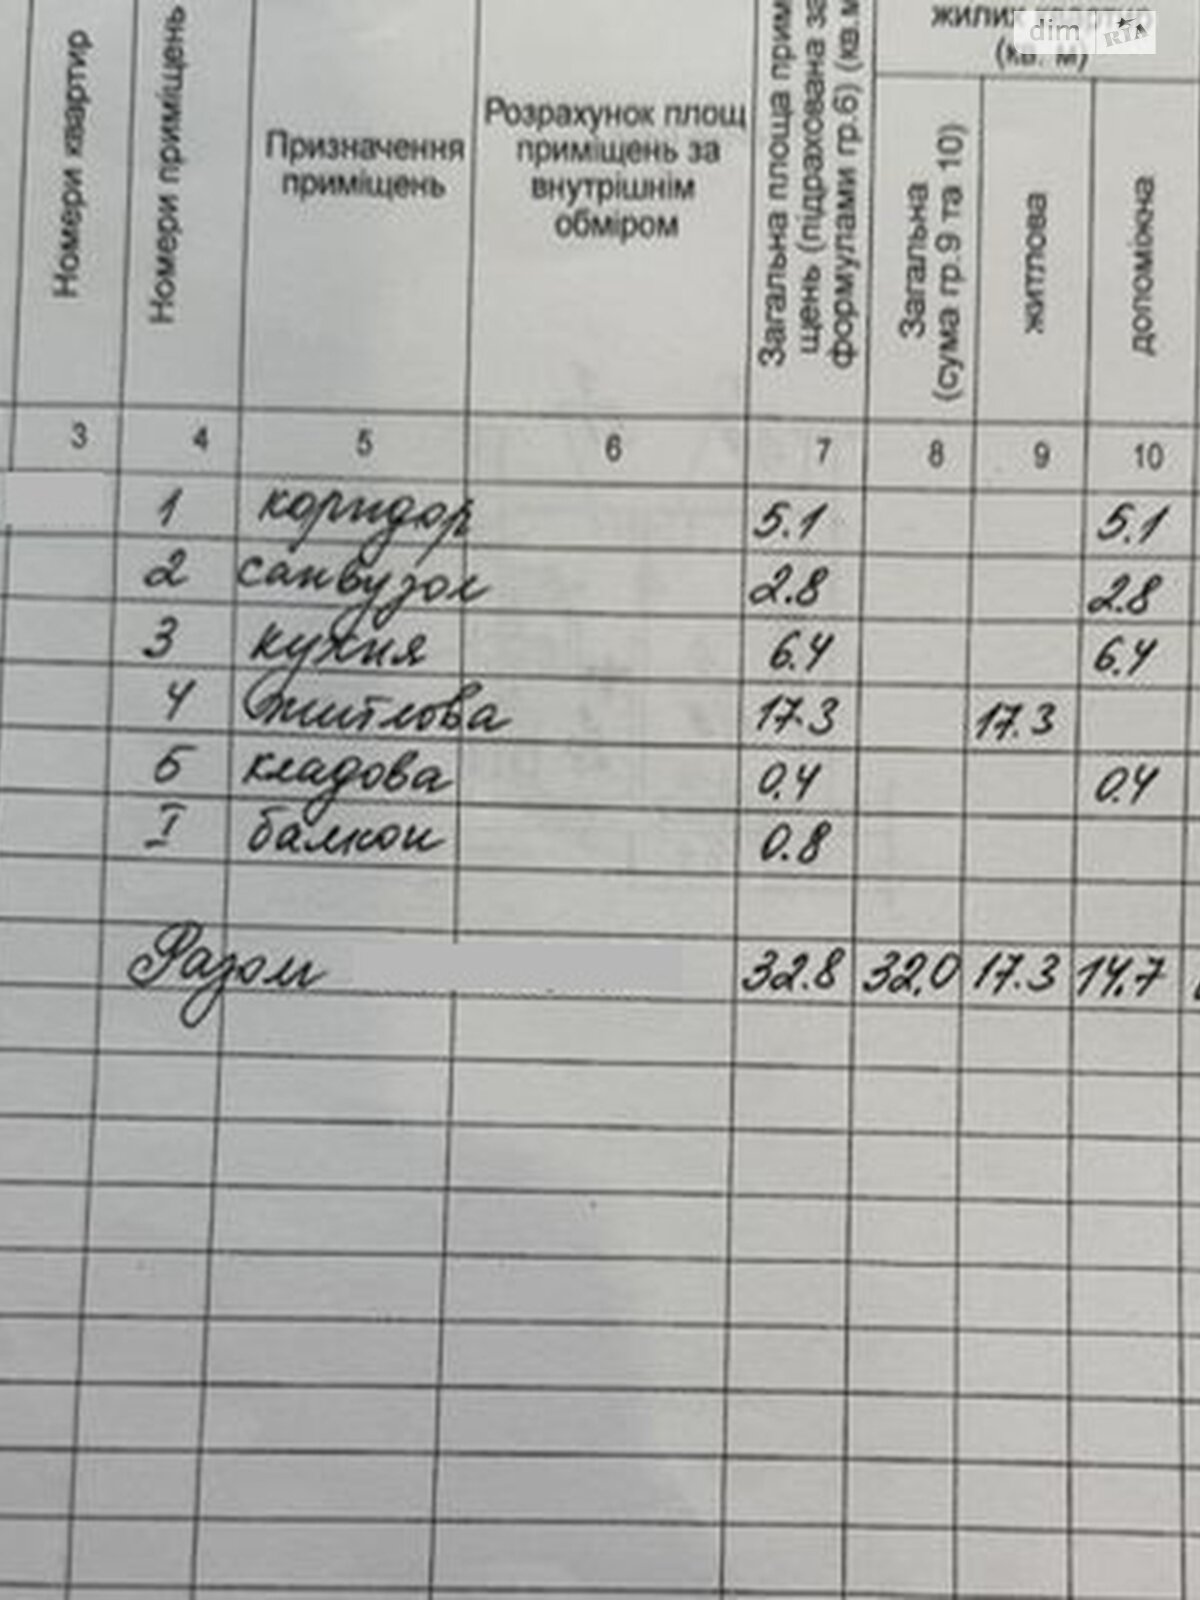 dim RIA
жилих квартир
(кв. м)
Номери квартир
Номери приміщень
Призначення
приміщень
Розрахунок площ
приміщень за
внутрішнім
обміром
Загальна площа прим
щень (підрахована за
формулами гр.6) (кв.м
Загальна
(сума гр.9 та 10)
житлова
допоміжна
3 4 5 6 7 8 9 10
1 коридор 5.1 5.1
2 санвузол 2.8 2.8
3 кухня 6.4 6.4
4 житлова 17.3 17.3
5 кладова 0.4 0.4
I балкон 0.8
Разом 32.8 32.0 17.3 14.7